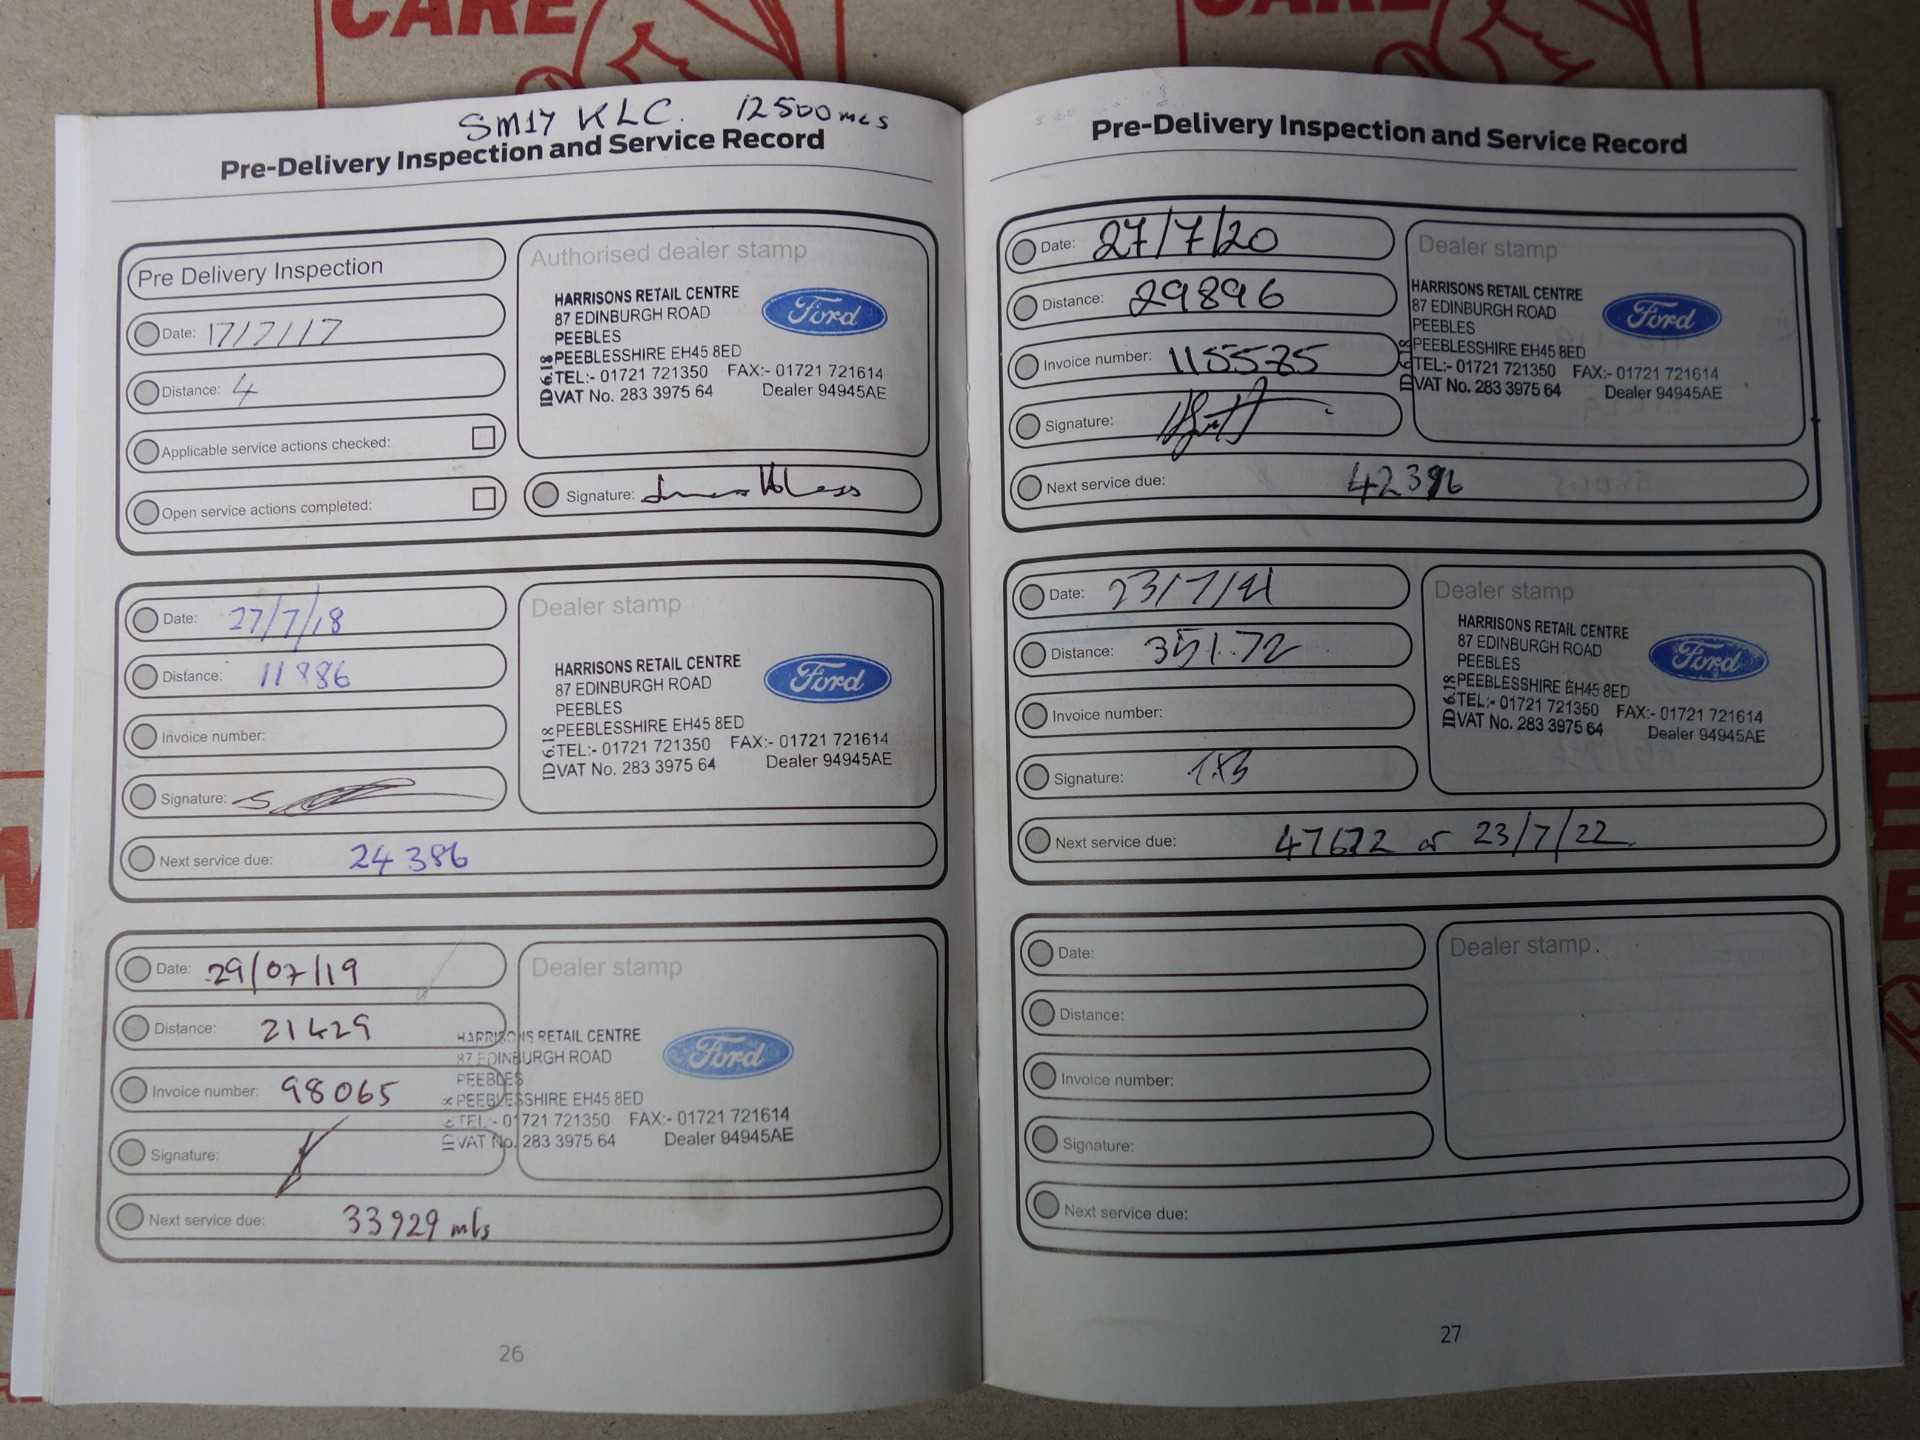 CARE
CARE
SM17 KLC. 12500 mls
Pre-Delivery Inspection and Service Record
Pre Delivery Inspection
Date: 17/7/17
Distance: 4
Applicable service actions checked:
Open service actions completed:
Authorised dealer stamp
HARRISONS RETAIL CENTRE
87 EDINBURGH ROAD
PEEBLES
PEEBLESSHIRE EH45 8ED
TEL:- 01721 721350 FAX:- 01721 721614
VAT No. 283 3975 64 Dealer 94945AE
ID 6.18
Ford
Signature:
Date: 27/7/18
Distance: 11886
Invoice number:
Signature:
Next service due: 24386
Dealer stamp
HARRISONS RETAIL CENTRE
87 EDINBURGH ROAD
PEEBLES
PEEBLESSHIRE EH45 8ED
TEL:- 01721 721350 FAX:- 01721 721614
VAT No. 283 3975 64 Dealer 94945AE
ID 6.18
Ford
Date: 29/07/19
Distance: 21429
Invoice number: 98065
Signature:
Next service due: 33929 mls
Dealer stamp
HARRISONS RETAIL CENTRE
87 EDINBURGH ROAD
PEEBLES
PEEBLESSHIRE EH45 8ED
TEL:- 01721 721350 FAX:- 01721 721614
VAT No. 283 3975 64 Dealer 94945AE
Ford
26
Pre-Delivery Inspection and Service Record
Date: 27/7/20
Distance: 29896
Invoice number: 115585
Signature:
Next service due: 42396
Dealer stamp
HARRISONS RETAIL CENTRE
87 EDINBURGH ROAD
PEEBLES
PEEBLESSHIRE EH45 8ED
TEL:- 01721 721350 FAX:- 01721 721614
VAT No. 283 3975 64 Dealer 94945AE
Ford
Date: 23/7/21
Distance: 35172
Invoice number:
Signature:
Next service due: 47672 or 23/7/22
Dealer stamp
HARRISONS RETAIL CENTRE
87 EDINBURGH ROAD
PEEBLES
PEEBLESSHIRE EH45 8ED
TEL:- 01721 721350 FAX:- 01721 721614
VAT No. 283 3975 64 Dealer 94945AE
ID 6.18
Ford
Date:
Distance:
Invoice number:
Signature:
Next service due:
Dealer stamp
27